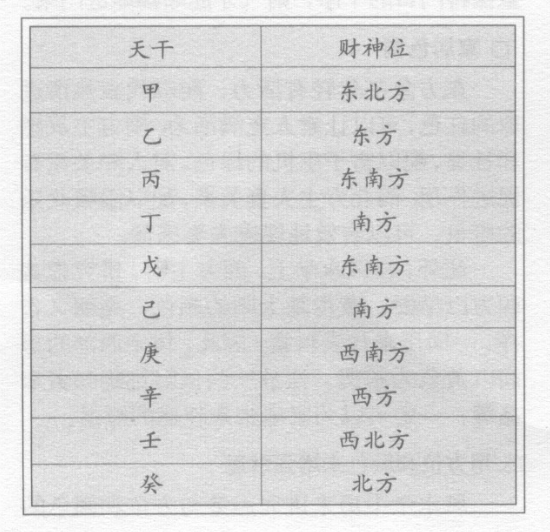 天干 财神位
甲 东北方
乙 东方
丙 东南方
丁 南方
戊 东南方
己 南方
庚 西南方
辛 西方
壬 西北方
癸 北方